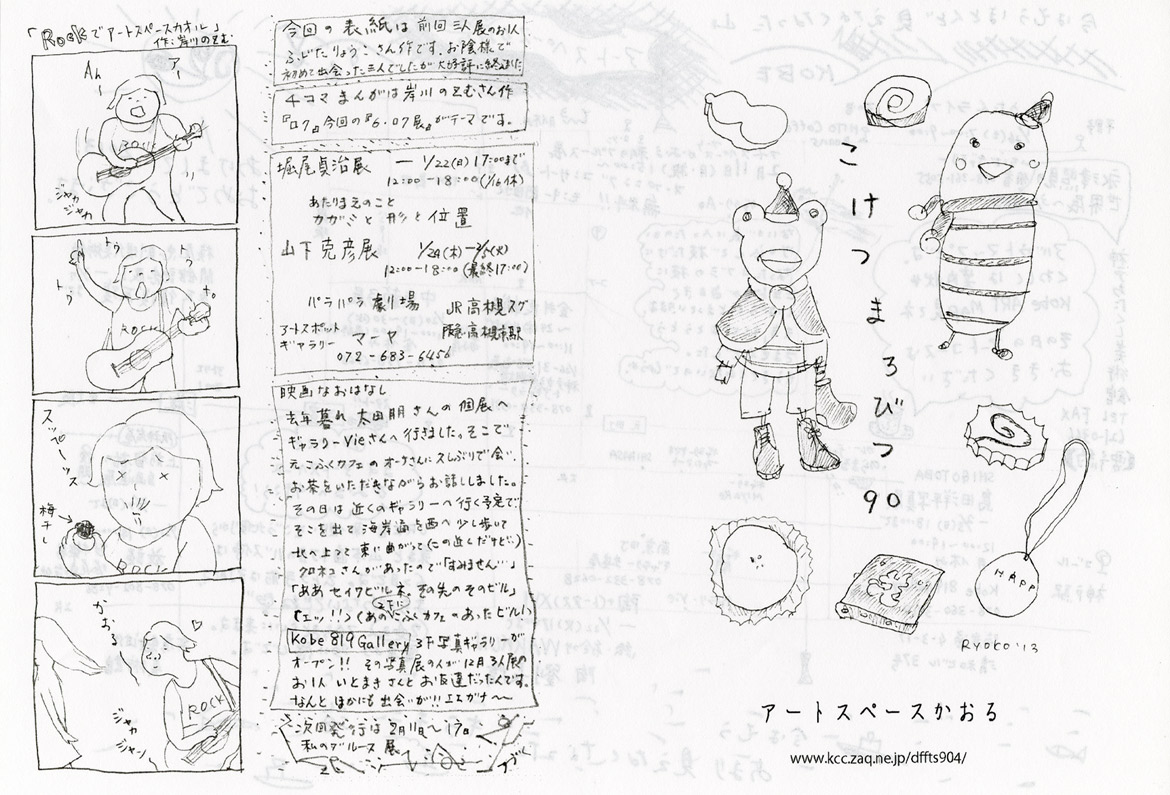 「Rockでアートスペースカオル」
作:岸川のぞむ
Ah
アー
ROCK
ジャカ
ジャカ
トゥ
トゥ
トゥ
ROCK
スッパーッ
梅干し
ROCK
かおる
ROCK
ジャカ
ジャン
今回の表紙は前回三人展のお1人
ふじたりょうこさん作です。お陰様で
初めて出会った三人でしたが大好評に終りました
4コマまんがは岸川のぞむさん作
『ロク』今回の『6.07展』がテーマです。
堀尾貞治展 ― 1/22(日)17:00まで
12:00―18:00(1/16休)
あたりまえのこと
カガミと形と位置
山下克彦展 1/24(木)―2/5(火)
12:00―18:00(最終17:00)
パラパラ劇場 JR高槻スグ
アートスポット
ギャラリー マヤ 阪急高槻市駅
072-683-6456
映画なおはなし
去年暮れ 太田朋さんの個展へ
ギャラリーVieさんへ行きました。そこで
元こふくカフェのオーナさんに久しぶりで会い、
お茶をいただきながらお話しました。
その日は近くのギャラリーへ行く予定で
そこを出て海岸通を西へ少し歩いて
北へ上って東い曲がって(この近しだけど、)
クロネコさんがあったので「すみません…」
「ああセイワビル ネ。その先のそのビル」
(エッ!!)(あの元こふくカフェのあったビル!)
Kobe 819 Gallery 3F写真ギャラリーが
オープン!! その写真展の人が12月3人展の
お1人いとまきさんとお友達だったんです。
なんとほかにも出会いが!!
次回発行は 2月11日〜17日
私のブルース展
こけつまろびつ90
HAPP
RYOKO '13
アートスペースかおる
www.kcc.zaq.ne.jp/dffts904/